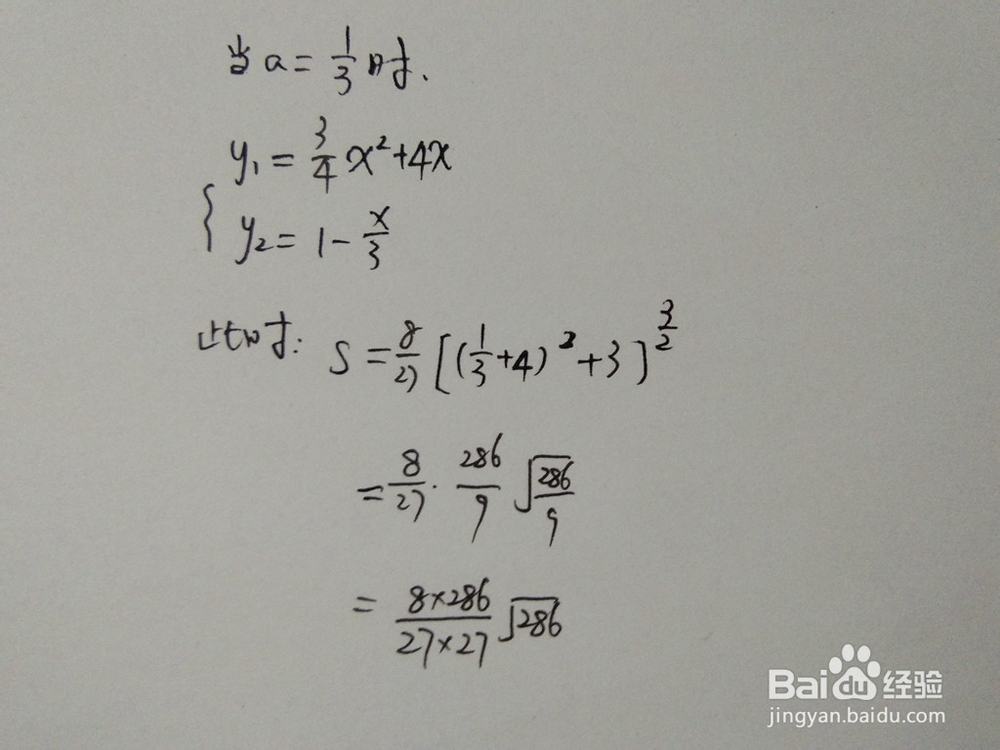 当 a = 1/3 时.
y₁ = 3/4 x² + 4x
{ y₂ = 1 - x/3
此时: S = 8/27 [(1/3 + 4)² + 3]^(3/2)
= 8/27 · 286/9 √(286/9)
= (8×286)/(27×27) √286
Baidu 经验
jingyan.baidu.com